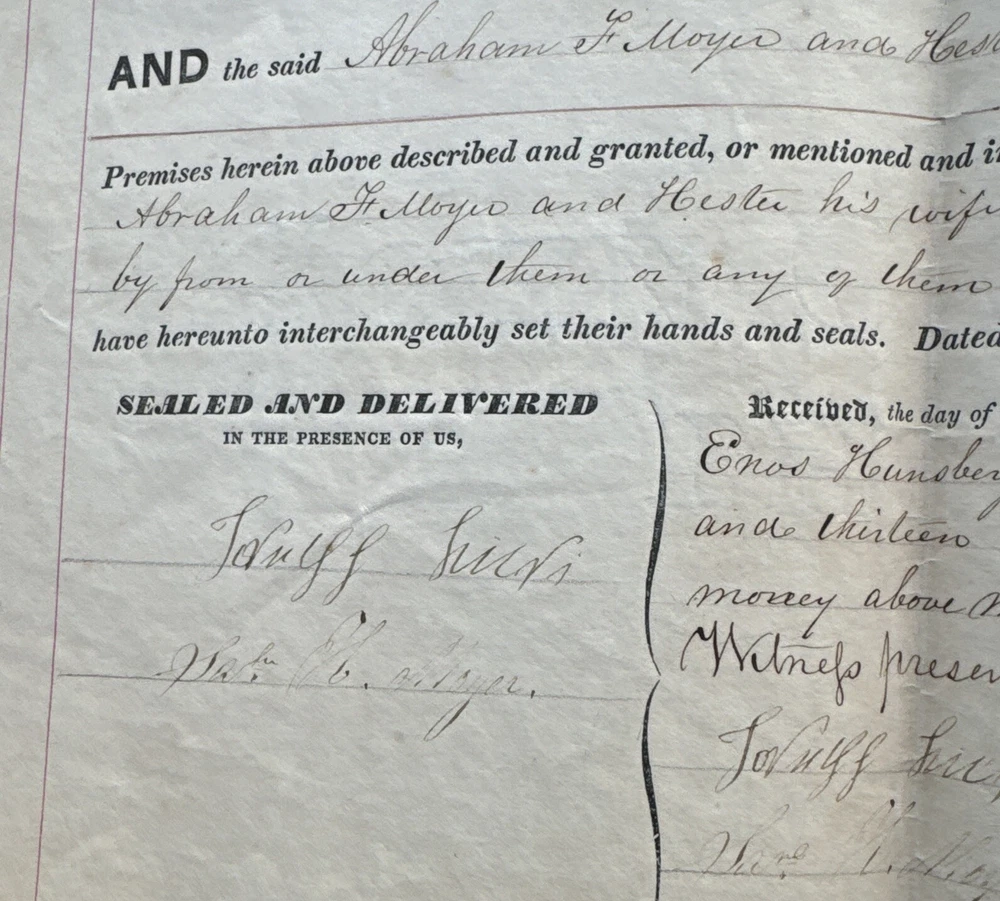 AND the said Abraham F Moyer and
Premises herein above described and granted, or mentioned and
Abraham F. Moyer and Hester his wife
by from or under them or any of them
have hereunto interchangeably set their hands and seals. Dated
SEALED AND DELIVERED
IN THE PRESENCE OF US,
Moyer.
Received, the day of
Enos
and thirteen
money above
Witness